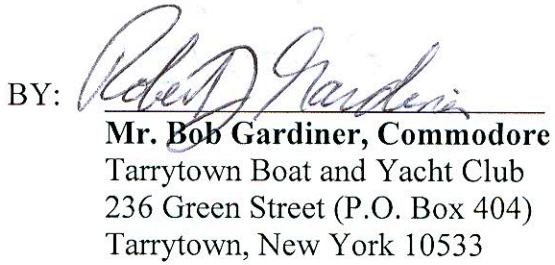 BY: Robert J Gardiner
Mr. Bob Gardiner, Commodore
Tarrytown Boat and Yacht Club
236 Green Street (P.O. Box 404)
Tarrytown, New York 10533